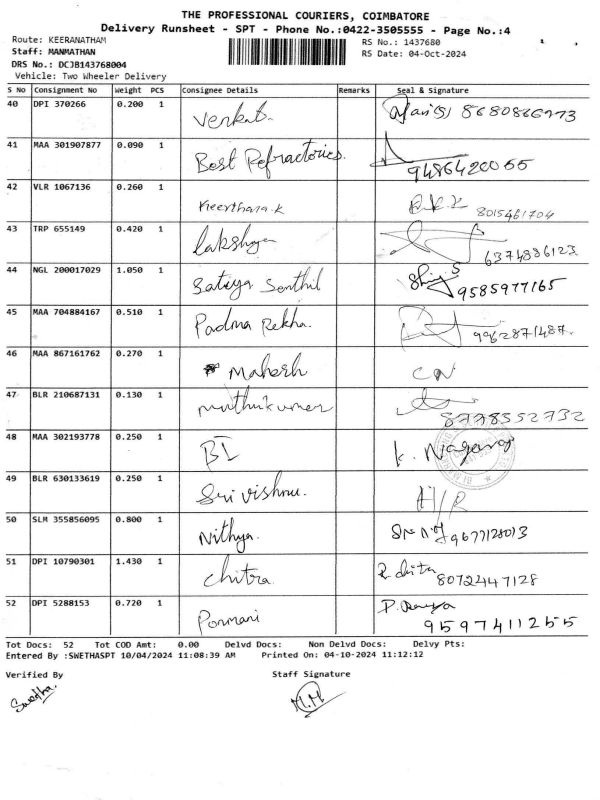 THE PROFESSIONAL COURIERS, COIMBATORE
Delivery Runsheet - SPT - Phone No.:0422-3505555 - Page No.:4
Route: KEERANATHAM RS No.: 1437680
Staff: MANMATHAN RS Date: 04-Oct-2024
DRS No.: DCJB143768004
Vehicle: Two Wheeler Delivery
S No Consignment No Weight PCS Consignee Details Remarks Seal & Signature
40 DPI 370266 0.200 1 Venkat. 8680866773
41 MAA 301907877 0.090 1 Best Refractories. 9486420055
42 VLR 1067136 0.260 1 Keerthana.K R.K.K 8015461704
43 TRP 655149 0.420 1 Lakshya 6374886123
44 NGL 200017029 1.050 1 Sathya Senthil 9585977165
45 MAA 704884167 0.510 1 Padma Rekha. 9962871487.
46 MAA 867161762 0.270 1 Mahesh CN
47 BLR 210687131 0.130 1 muthukumar 8778552732
48 MAA 302193778 0.250 1 BI K. Nagaraj
49 BLR 630133619 0.250 1 Sri vishnu. H/R
50 SLM 355856095 0.800 1 Nithya. 9677128013
51 DPI 10790301 1.430 1 Chitra. R. chitra 8072447128
52 DPI 5288153 0.720 1 Ponmani 9597411255
Tot Docs: 52 Tot COD Amt: 0.00 Delvd Docs: Non Delvd Docs: Delvy Pts:
Entered By :SWETHASPT 10/04/2024 11:08:39 AM Printed On: 04-10-2024 11:12:12
Verified By Staff Signature
Swetha. M.M